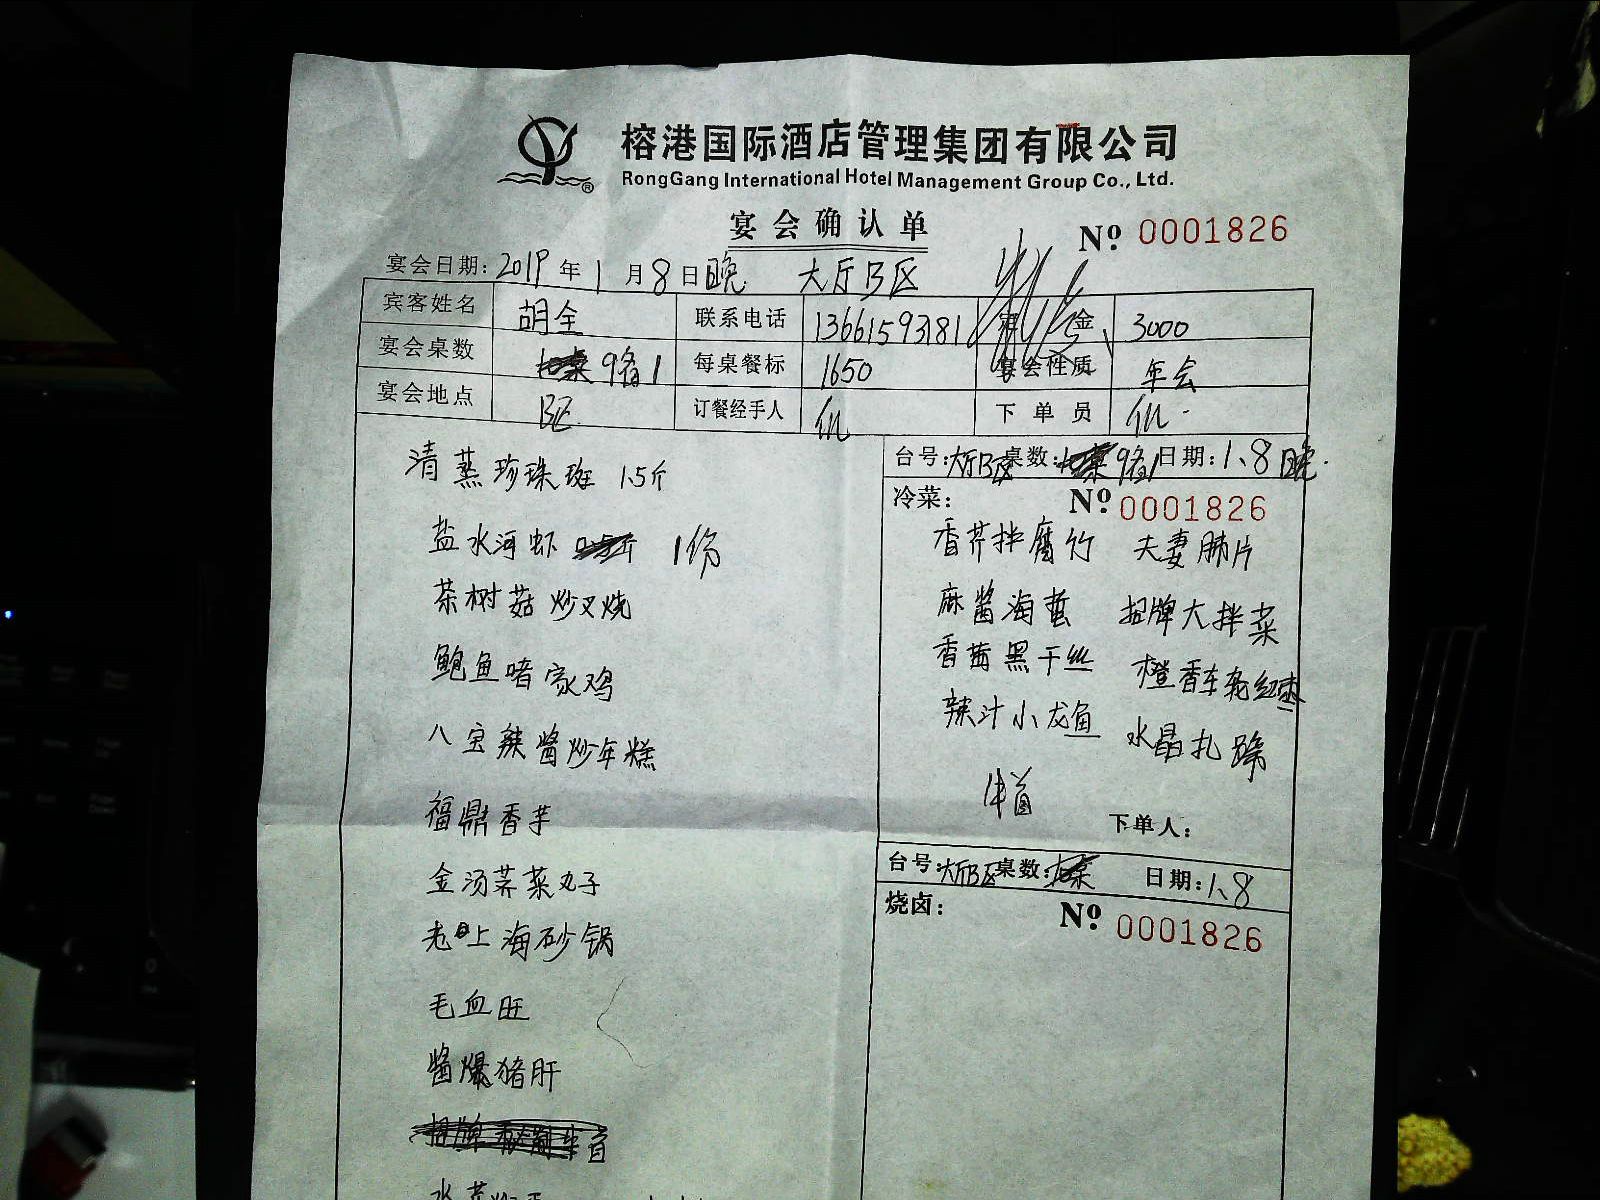 榕港国际酒店管理集团有限公司
RongGang International Hotel Management Group Co., Ltd.
宴会确认单
Nº 0001826
宴会日期: 2019 年 1 月 8 日晚 大厅B区
宾客姓名 胡全 联系电话 13661593181 金 3000
宴会桌数 9备1 每桌餐标 1650 宴会性质 年会
宴会地点 B区 订餐经手人 下单员
台号: 大厅B区 桌数: 9备1 日期: 1.8晚
清蒸珍珠斑 1.5斤
冷菜: Nº 0001826
盐水河虾 1份
香芹拌腐竹 夫妻肺片
茶树菇炒叉烧
麻酱海蜇 招牌大拌菜
鲍鱼啫家鸡
香茜黑干丝 橙香车轮红枣
八宝辣酱炒年糕
辣汁小龙鱼 水晶扎蹄
福鼎香芋
下单人:
金汤荠菜丸子
台号: 大厅B区 桌数: 日期: 1.8
老上海砂锅
烧卤: Nº 0001826
毛血旺
酱爆猪肝